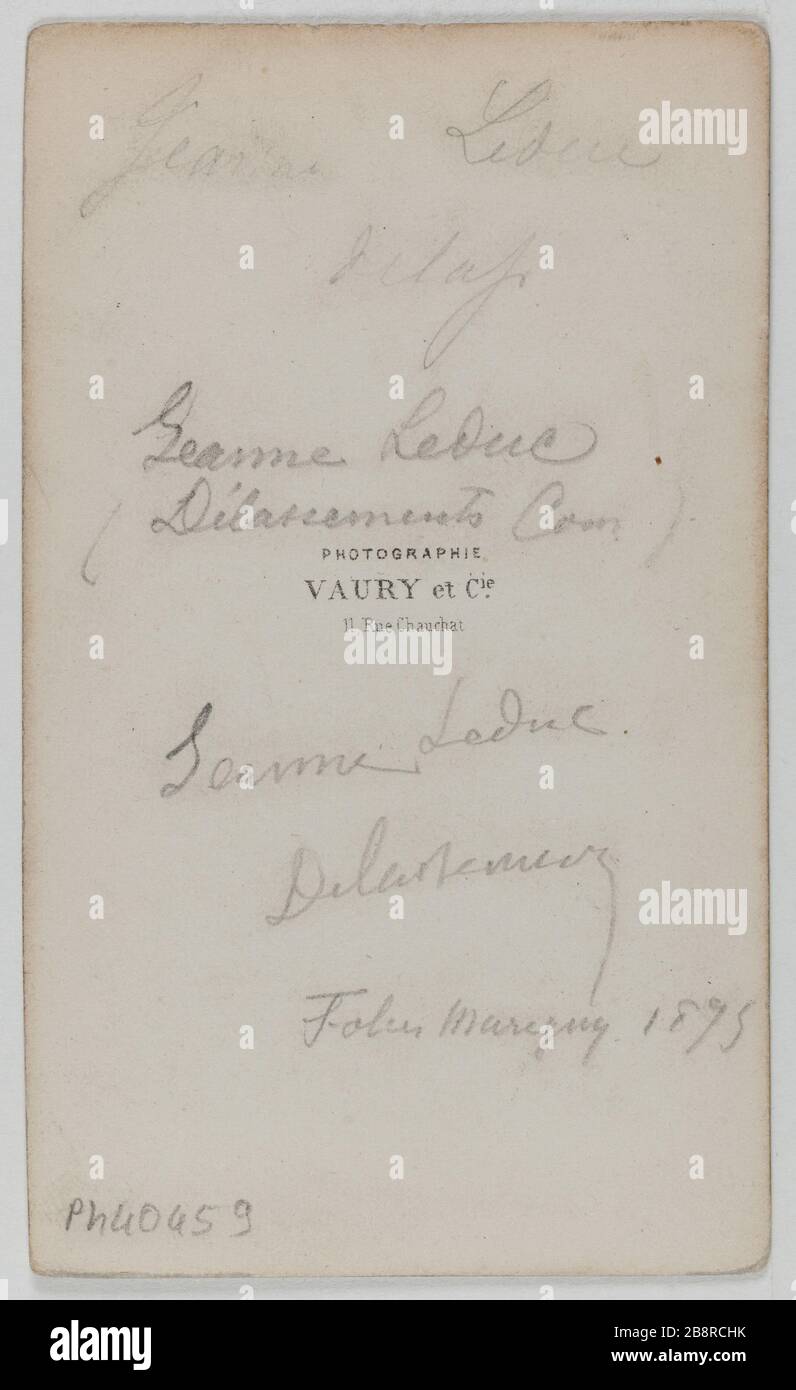 Jeanne Leduc
délass
Jeanne Leduc
(Délassements Com)
PHOTOGRAPHIE
VAURY et Cie.
11, Rue Chauchat
Jeanne Leduc.
Delassements
Folies Marigny 1875
Ph40459
alamy
Image ID: 2B8RCHK
www.alamy.com